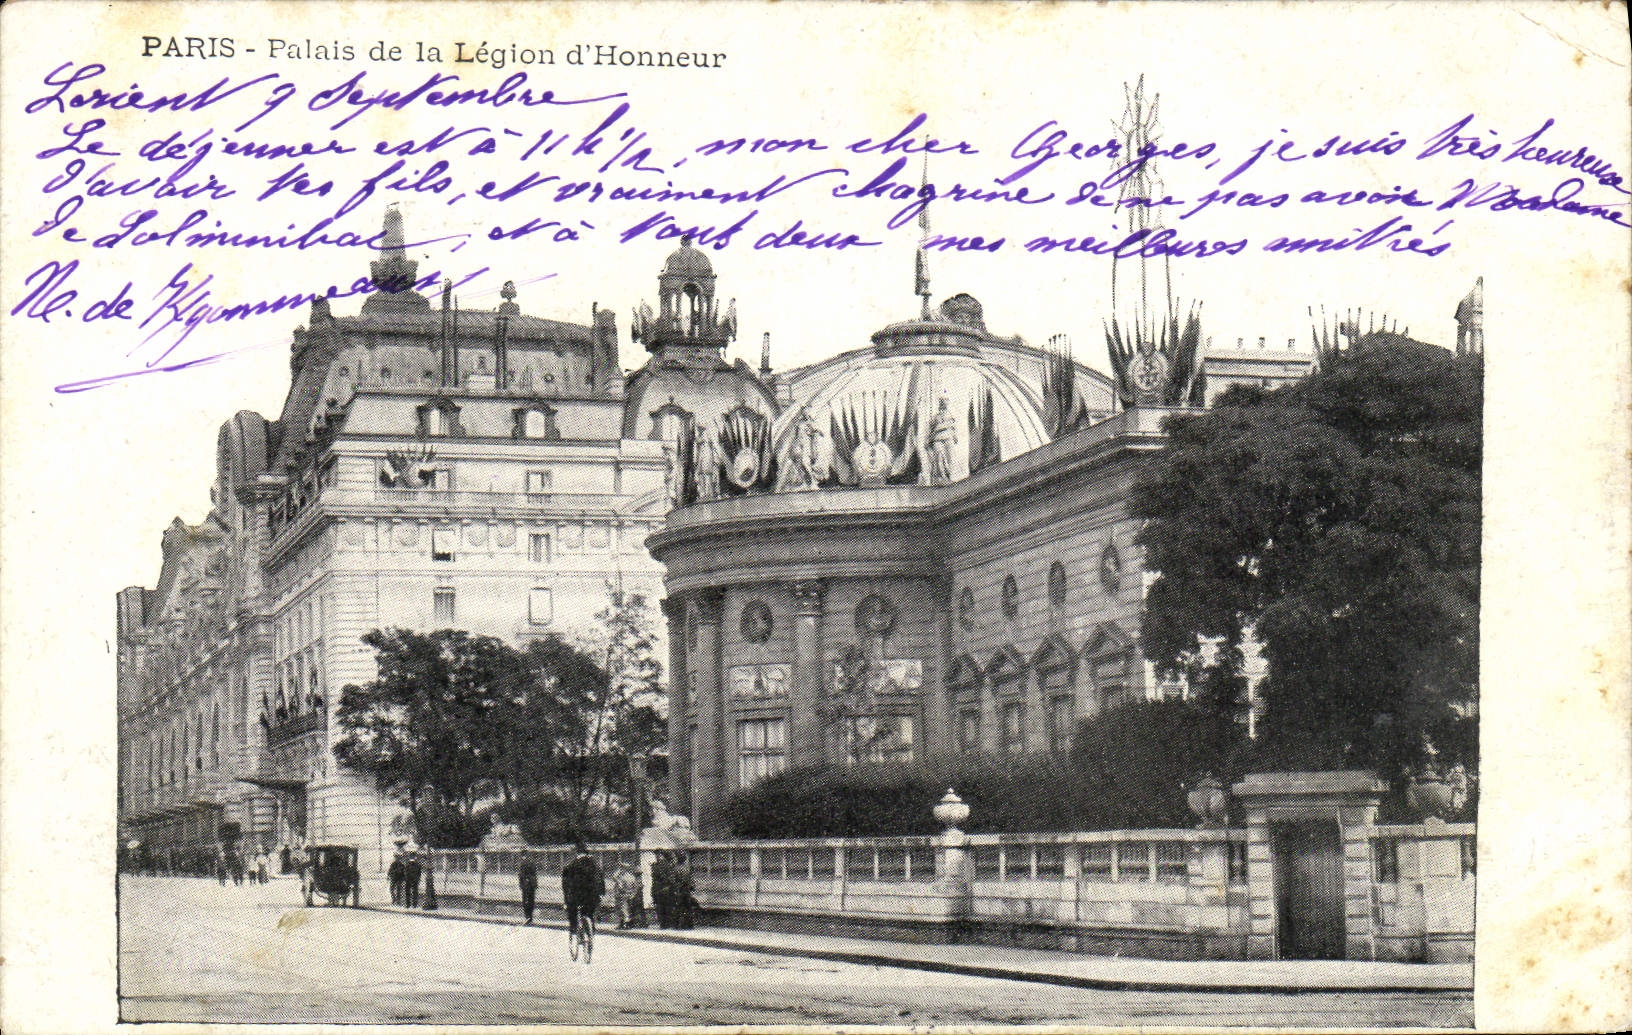 PARIS - Palais de la Légion d'Honneur
Lorient 9 Septembre
Le déjeuner est à 11 h 1/2, mon cher Georges, je suis très heureuse
d'avoir tes fils, et vraiment chagrine de ne pas avoir Madame
de Solminihac, et à tout deux mes meilleures amitiés
M. de